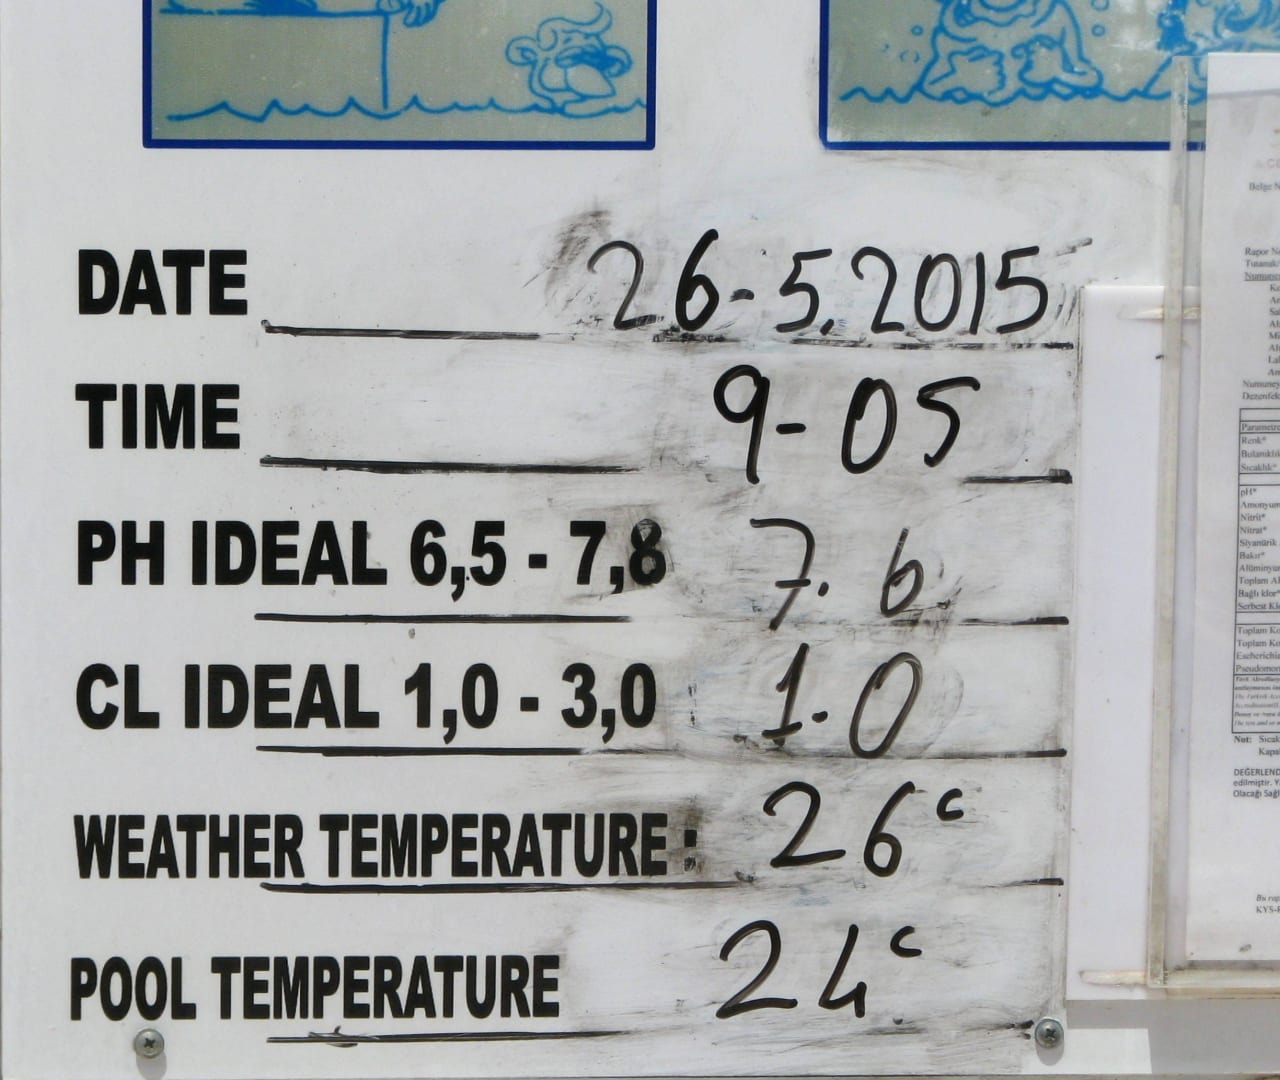 DATE 26-5.2015
TIME 9-05
PH IDEAL 6,5 - 7,8 7.6
CL IDEAL 1,0 - 3,0 1.0
WEATHER TEMPERATURE : 26c
POOL TEMPERATURE 24c
Belge N
Rapor N
Numuney
Dezenfek
Parametre
Renk*
Bulanıklık
Sıcaklık*
pH*
Amonyum
Nitrit*
Nitrat*
Siyanürik
Bakır*
Alüminyu
Toplam Al
Bağlı klor*
Serbest Kl
Toplam Ko
Toplam Ko
Escherichi
Pseudomon
Not: Sıcak
Kapal
DEĞERLEND
edilmiştir. Y
Olacağı Sağl
Bu rap
KYS-F